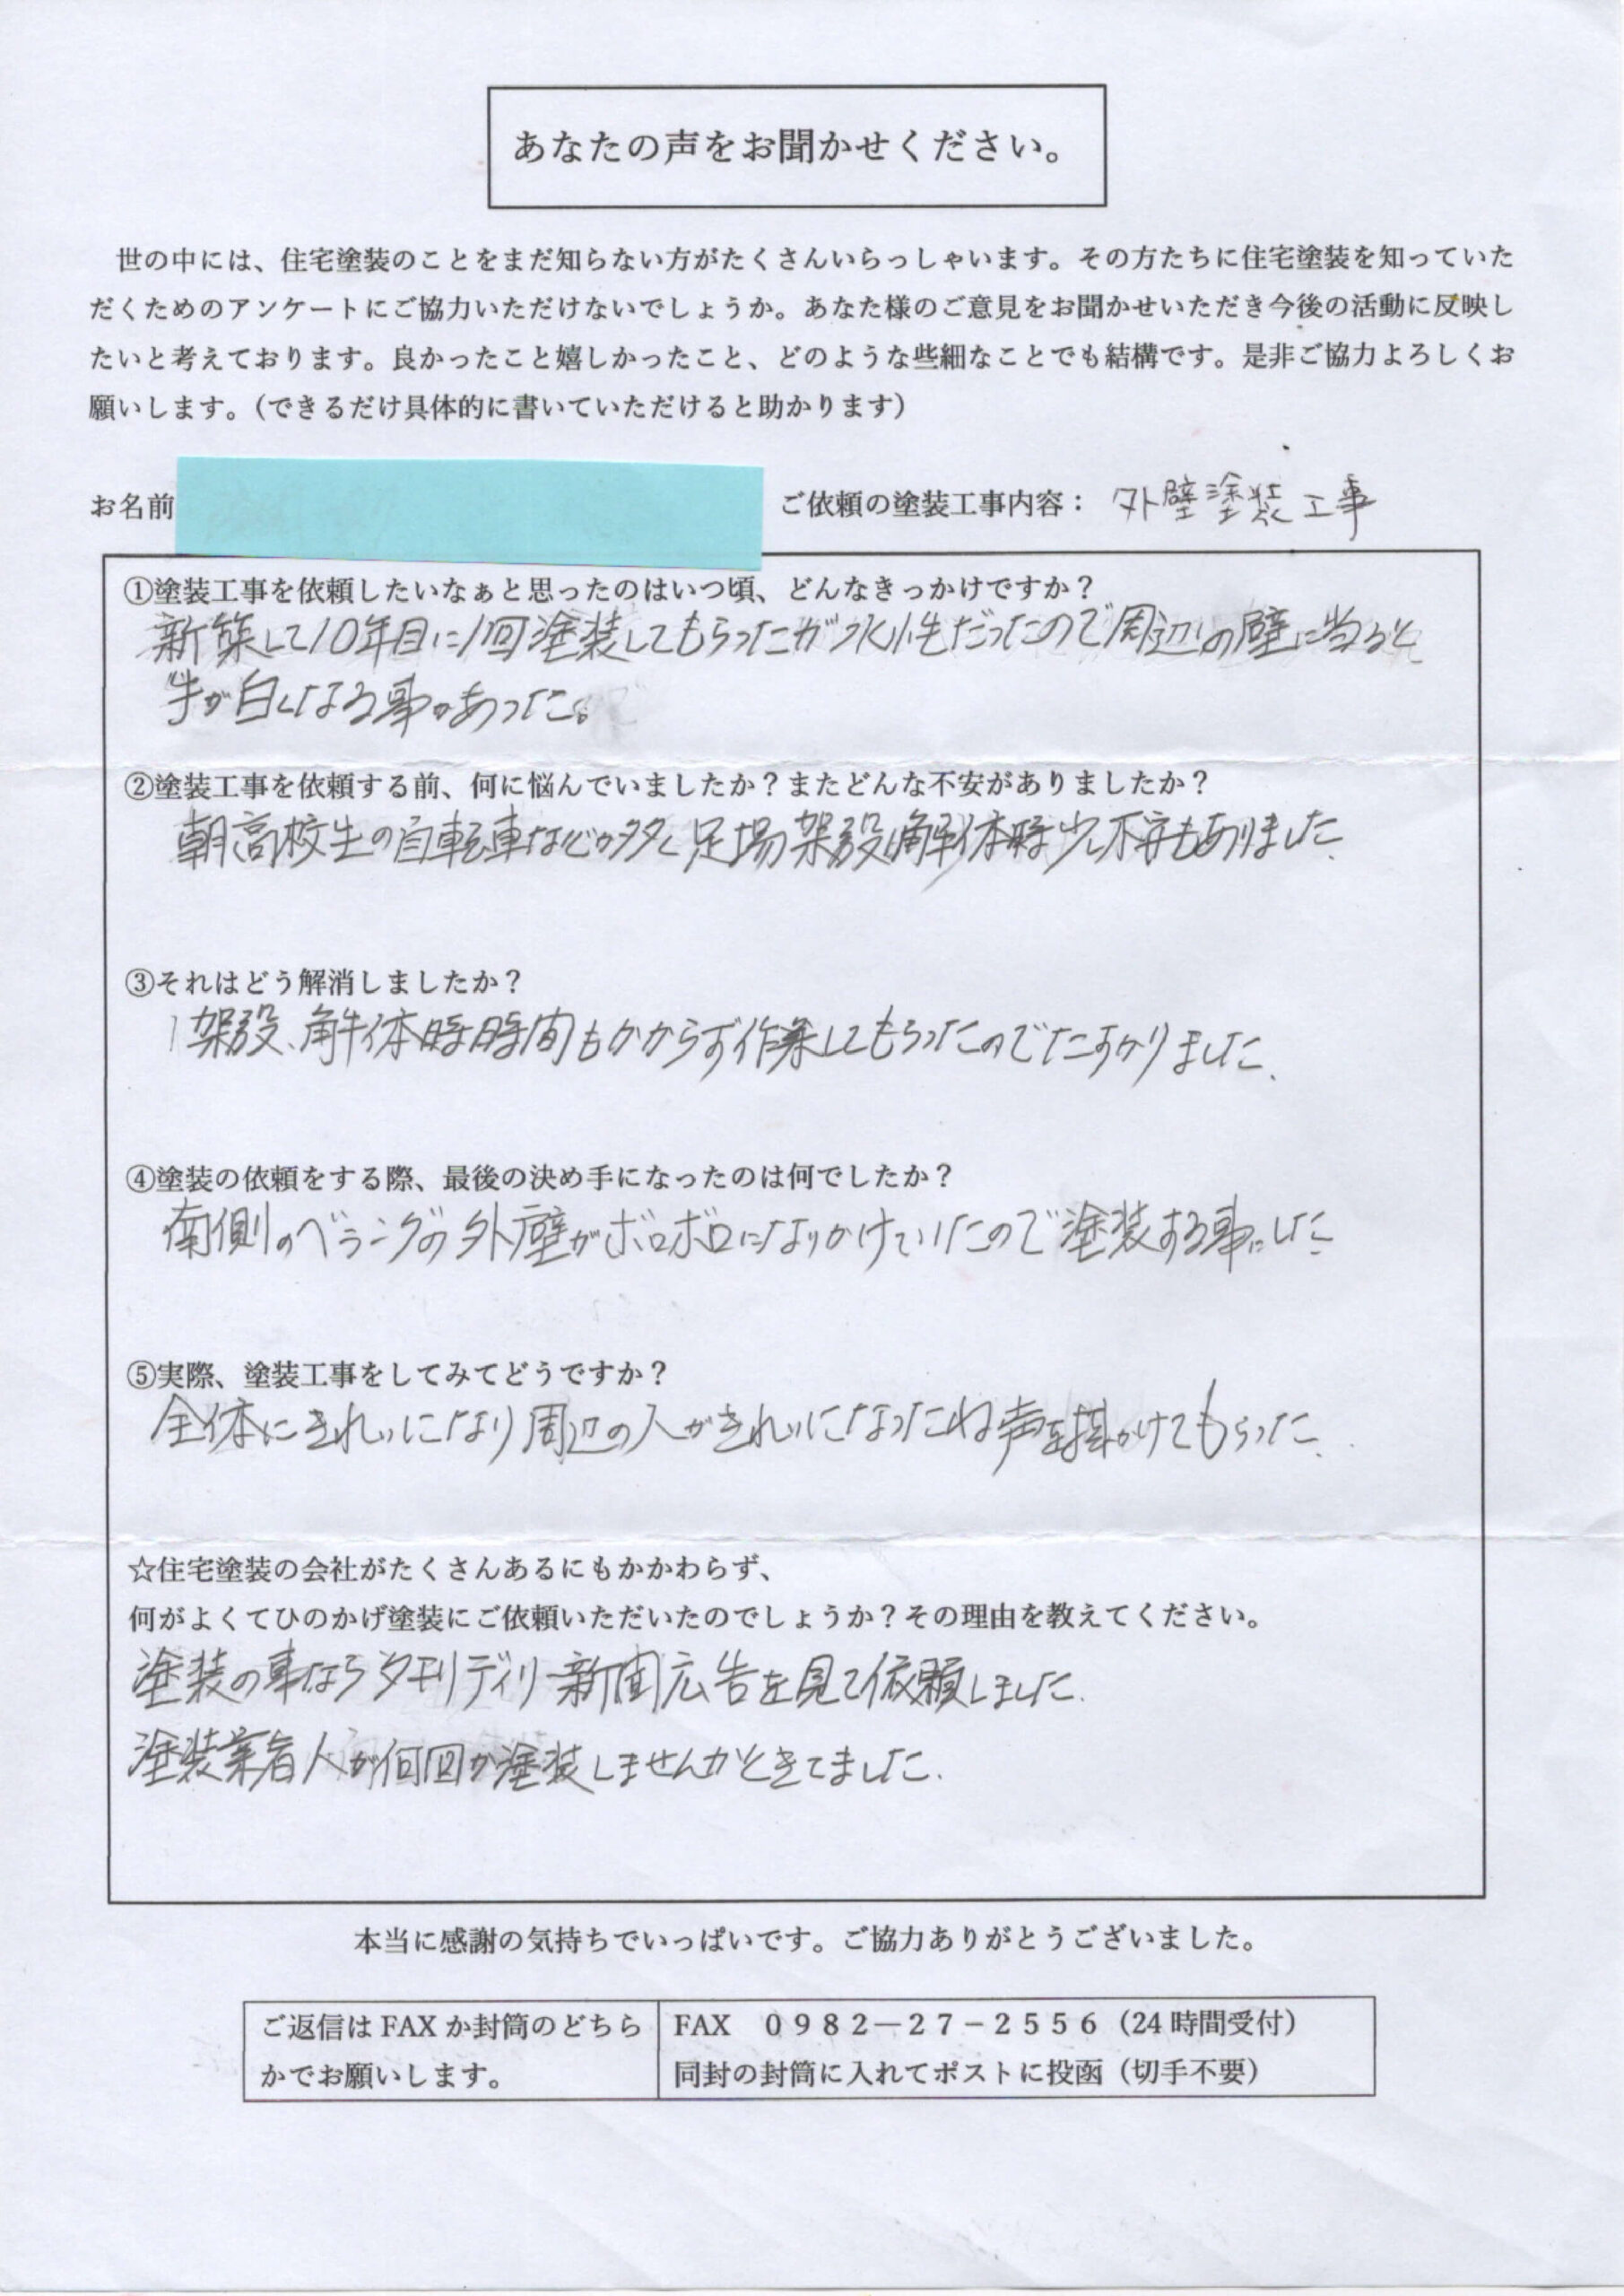 あなたの声をお聞かせください。
世の中には、住宅塗装のことをまだ知らない方がたくさんいらっしゃいます。その方たちに住宅塗装を知っていた
だくためのアンケートにご協力いただけないでしょうか。あなた様のご意見をお聞かせいただき今後の活動に反映し
たいと考えております。良かったこと嬉しかったこと、どのような些細なことでも結構です。是非ご協力よろしくお
願いします。（できるだけ具体的に書いていただけると助かります）
お名前 ご依頼の塗装工事内容： 外壁塗装工事
①塗装工事を依頼したいなぁと思ったのはいつ頃、どんなきっかけですか？
新築して10年目に1回塗装してもらったが水性だったので周辺の壁に当ると
手が白くなる事があった。
②塗装工事を依頼する前、何に悩んでいましたか？またどんな不安がありましたか？
朝高校生の自転車などが多く足場架設解体時少不安もありました
③それはどう解消しましたか？
架設、解体時時間もかからず作業してもらったのでたすかりました、
④塗装の依頼をする際、最後の決め手になったのは何でしたか？
南側のベランダの外壁がボロボロになりかけていたので塗装する事にした
⑤実際、塗装工事をしてみてどうですか？
全体にきれいになり周辺の人がきれいになったね声を掛かけてもらった、
☆住宅塗装の会社がたくさんあるにもかかわらず、
何がよくてひのかげ塗装にご依頼いただいたのでしょうか？その理由を教えてください。
塗装の事なら夕刊デイリー新聞広告を見て依頼しました、
塗装業者人が何回か塗装しませんかときてました、
本当に感謝の気持ちでいっぱいです。ご協力ありがとうございました。
ご返信は FAX か封筒のどちら FAX ０９８２－２７－２５５６（24 時間受付）
かでお願いします。 同封の封筒に入れてポストに投函（切手不要）